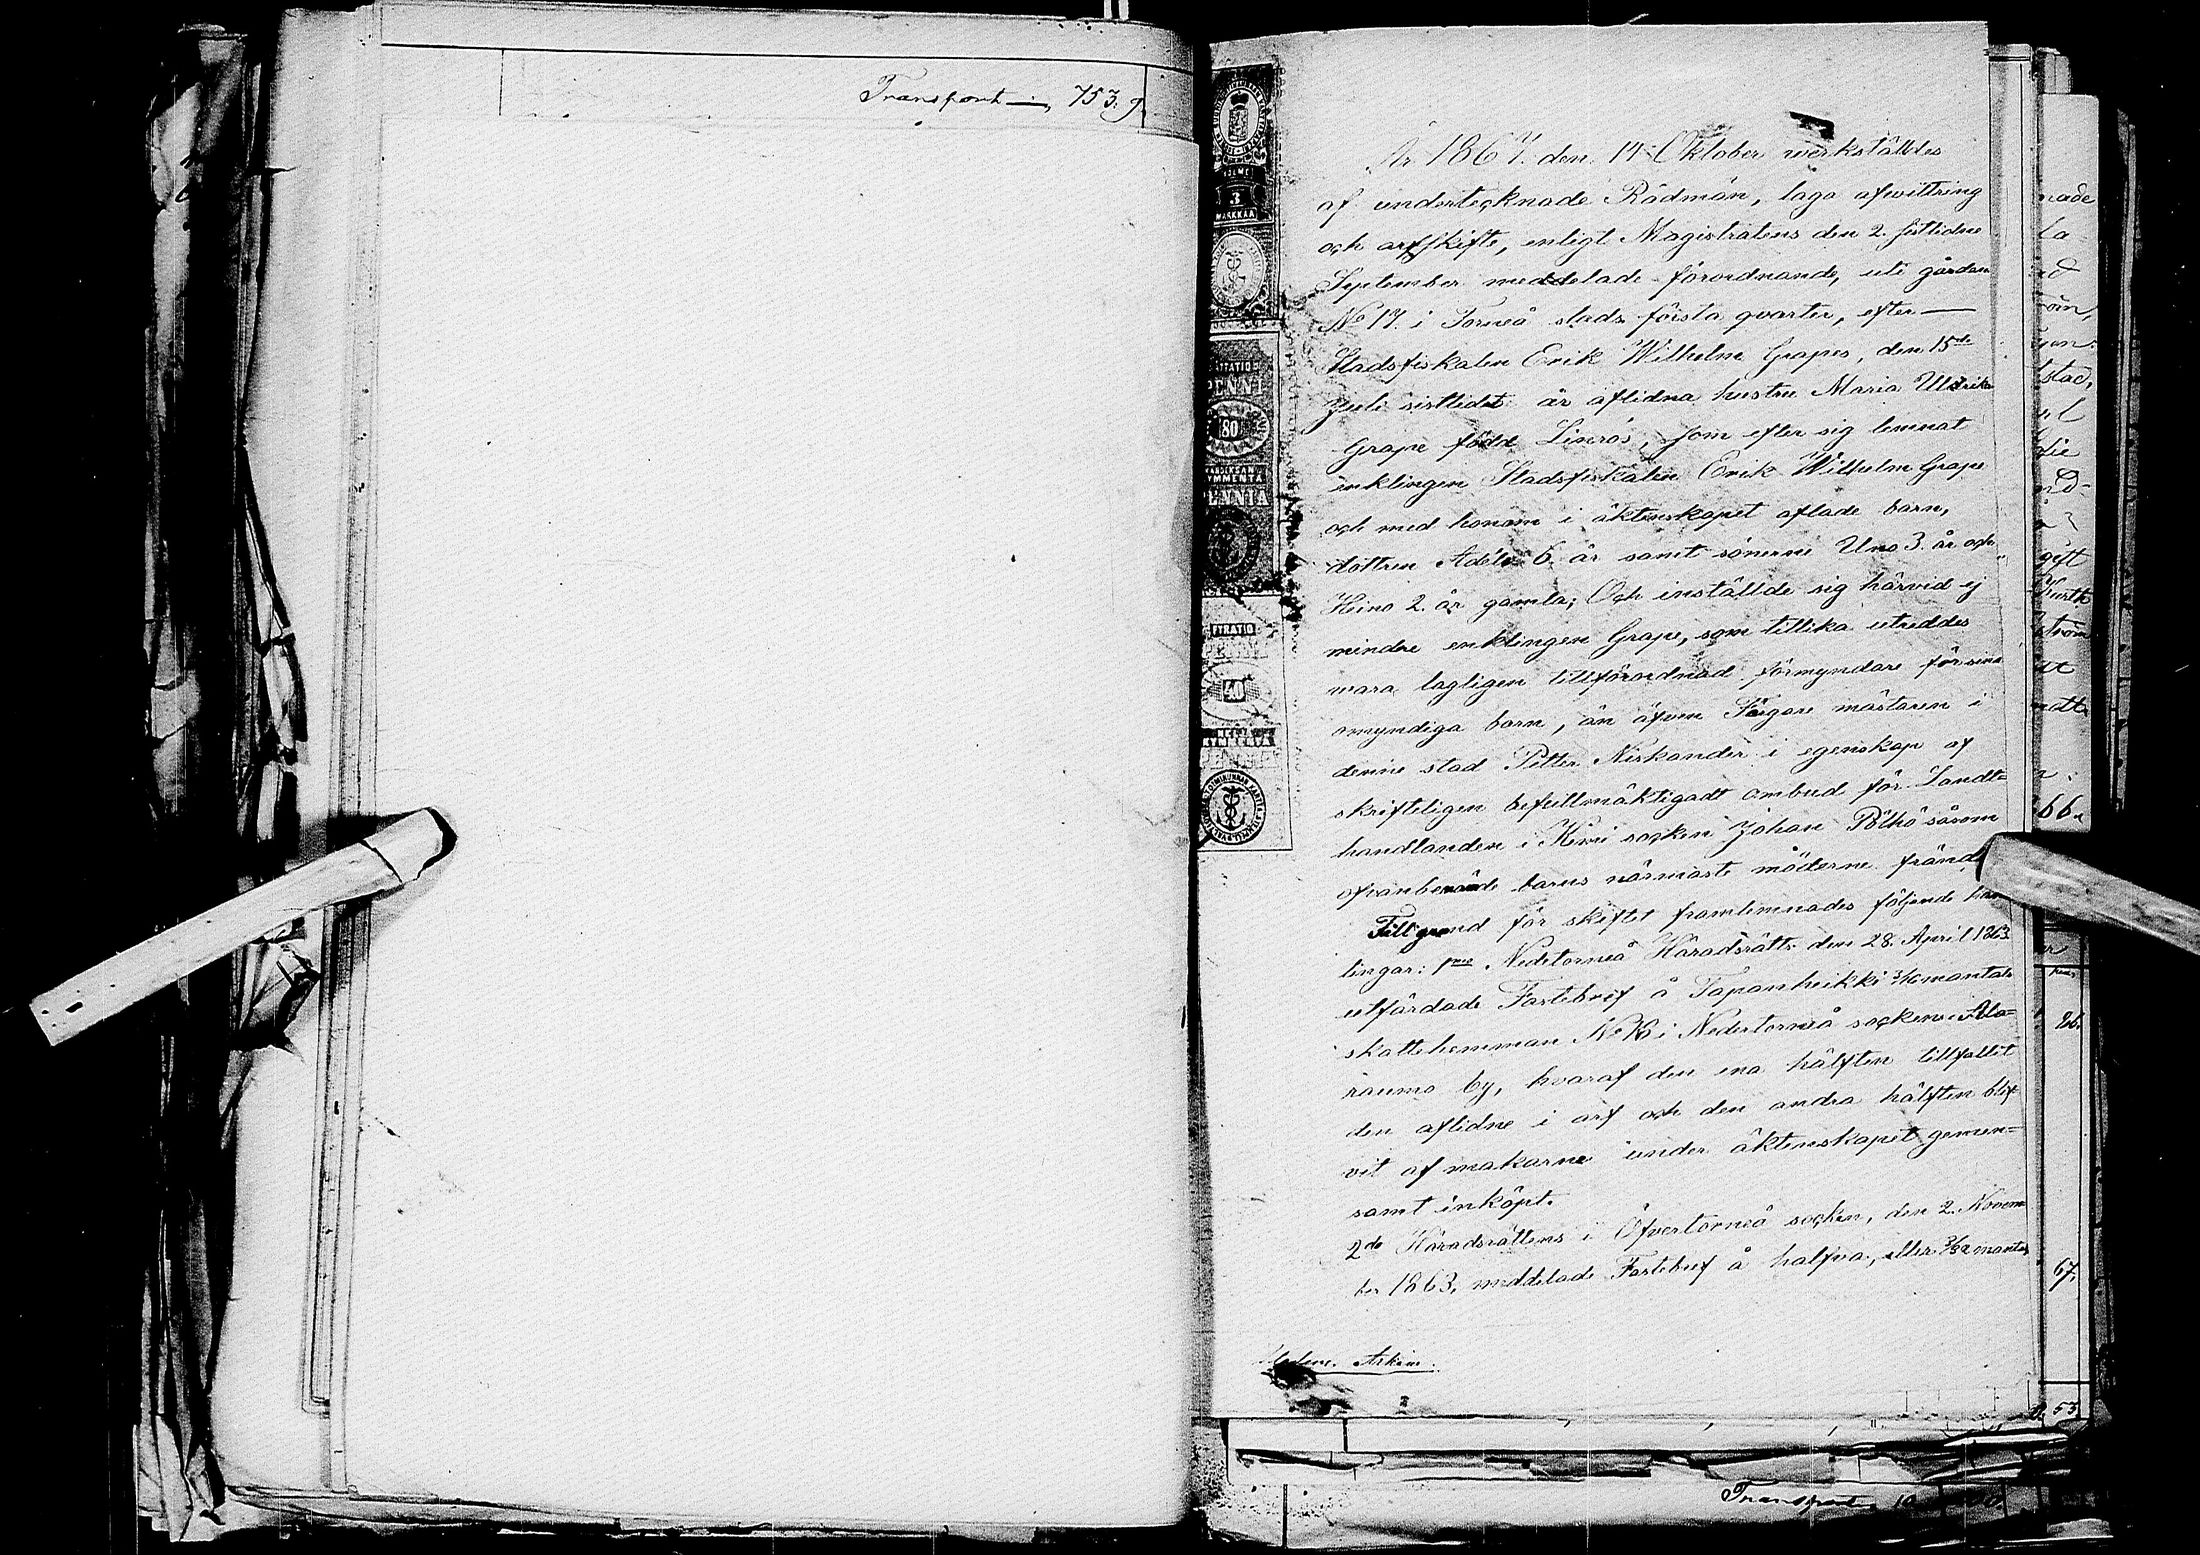 Transport 753. 9
År 1867. den 14 Oktober werkställdes
af undertecknade Rådmän, laga afvittring
och arfskifte, enligt Magistratens den 2. sistlidne
September meddelade förordnande, uti gården
No 17. i Torneå stads första qvarter, efter
Stadsfiskalen Erik Wilhelm Grapes, den 15de
Juli sistlidet år aflidna hustru Maria Ulrika
Grape född Liserós, som efter sig lemnat
enklingen Stadsfiskalen Erik Wilhelm Grape
och med honom i äktenskapet aflade barn,
dottren Adéle 6 år samt sönerne Uno 3. år och
Heino 2. år gamla; Och inställde sig härvid ej
mindre enklingen Grape, som tillika utreddes
wara lagligen tillförordnad förmyndare för sina
omyndiga barn, än äfven Färgare mästaren i
denne stad Petter Niskander i egenskap af
skrifteligen befullmäktigadt ombud för Landt-
handlanden i Kemi socken Johan Pölhö såsom
ofvanbemände barns närmaste möderne fränd
Till grund för skiftet framlemnades följande han
lingar: 1mo Nedetorneå Häradsrätts den 28. April 1863
utfärdade Fastebref å Tapanheikki 3/16 mantals
skattehemman No 16 i Nedertorneå sockens Ala-
raumo by, hvaraf den ena hälften tillfallit
den aflidne i arf och den andra hälften blif-
vit af makarne under äktenskapet gemen-
samt inköpt.
2do Häradsrättens i Öfvertorneå socken, den 2. Novem
ber 1863, meddelade Fastebref å halfva, eller 3/32 mantal
Arkiv.
TOLME
3
MARKKAA
ÅTTATIO
PENNI
80
KYMMENTÄ
PENNIÄ
FYRATIO
PENNI
40
NELJÄ
KYMMENTÄ
nade
stad,
gift
66.
26.
67.
53
Transport